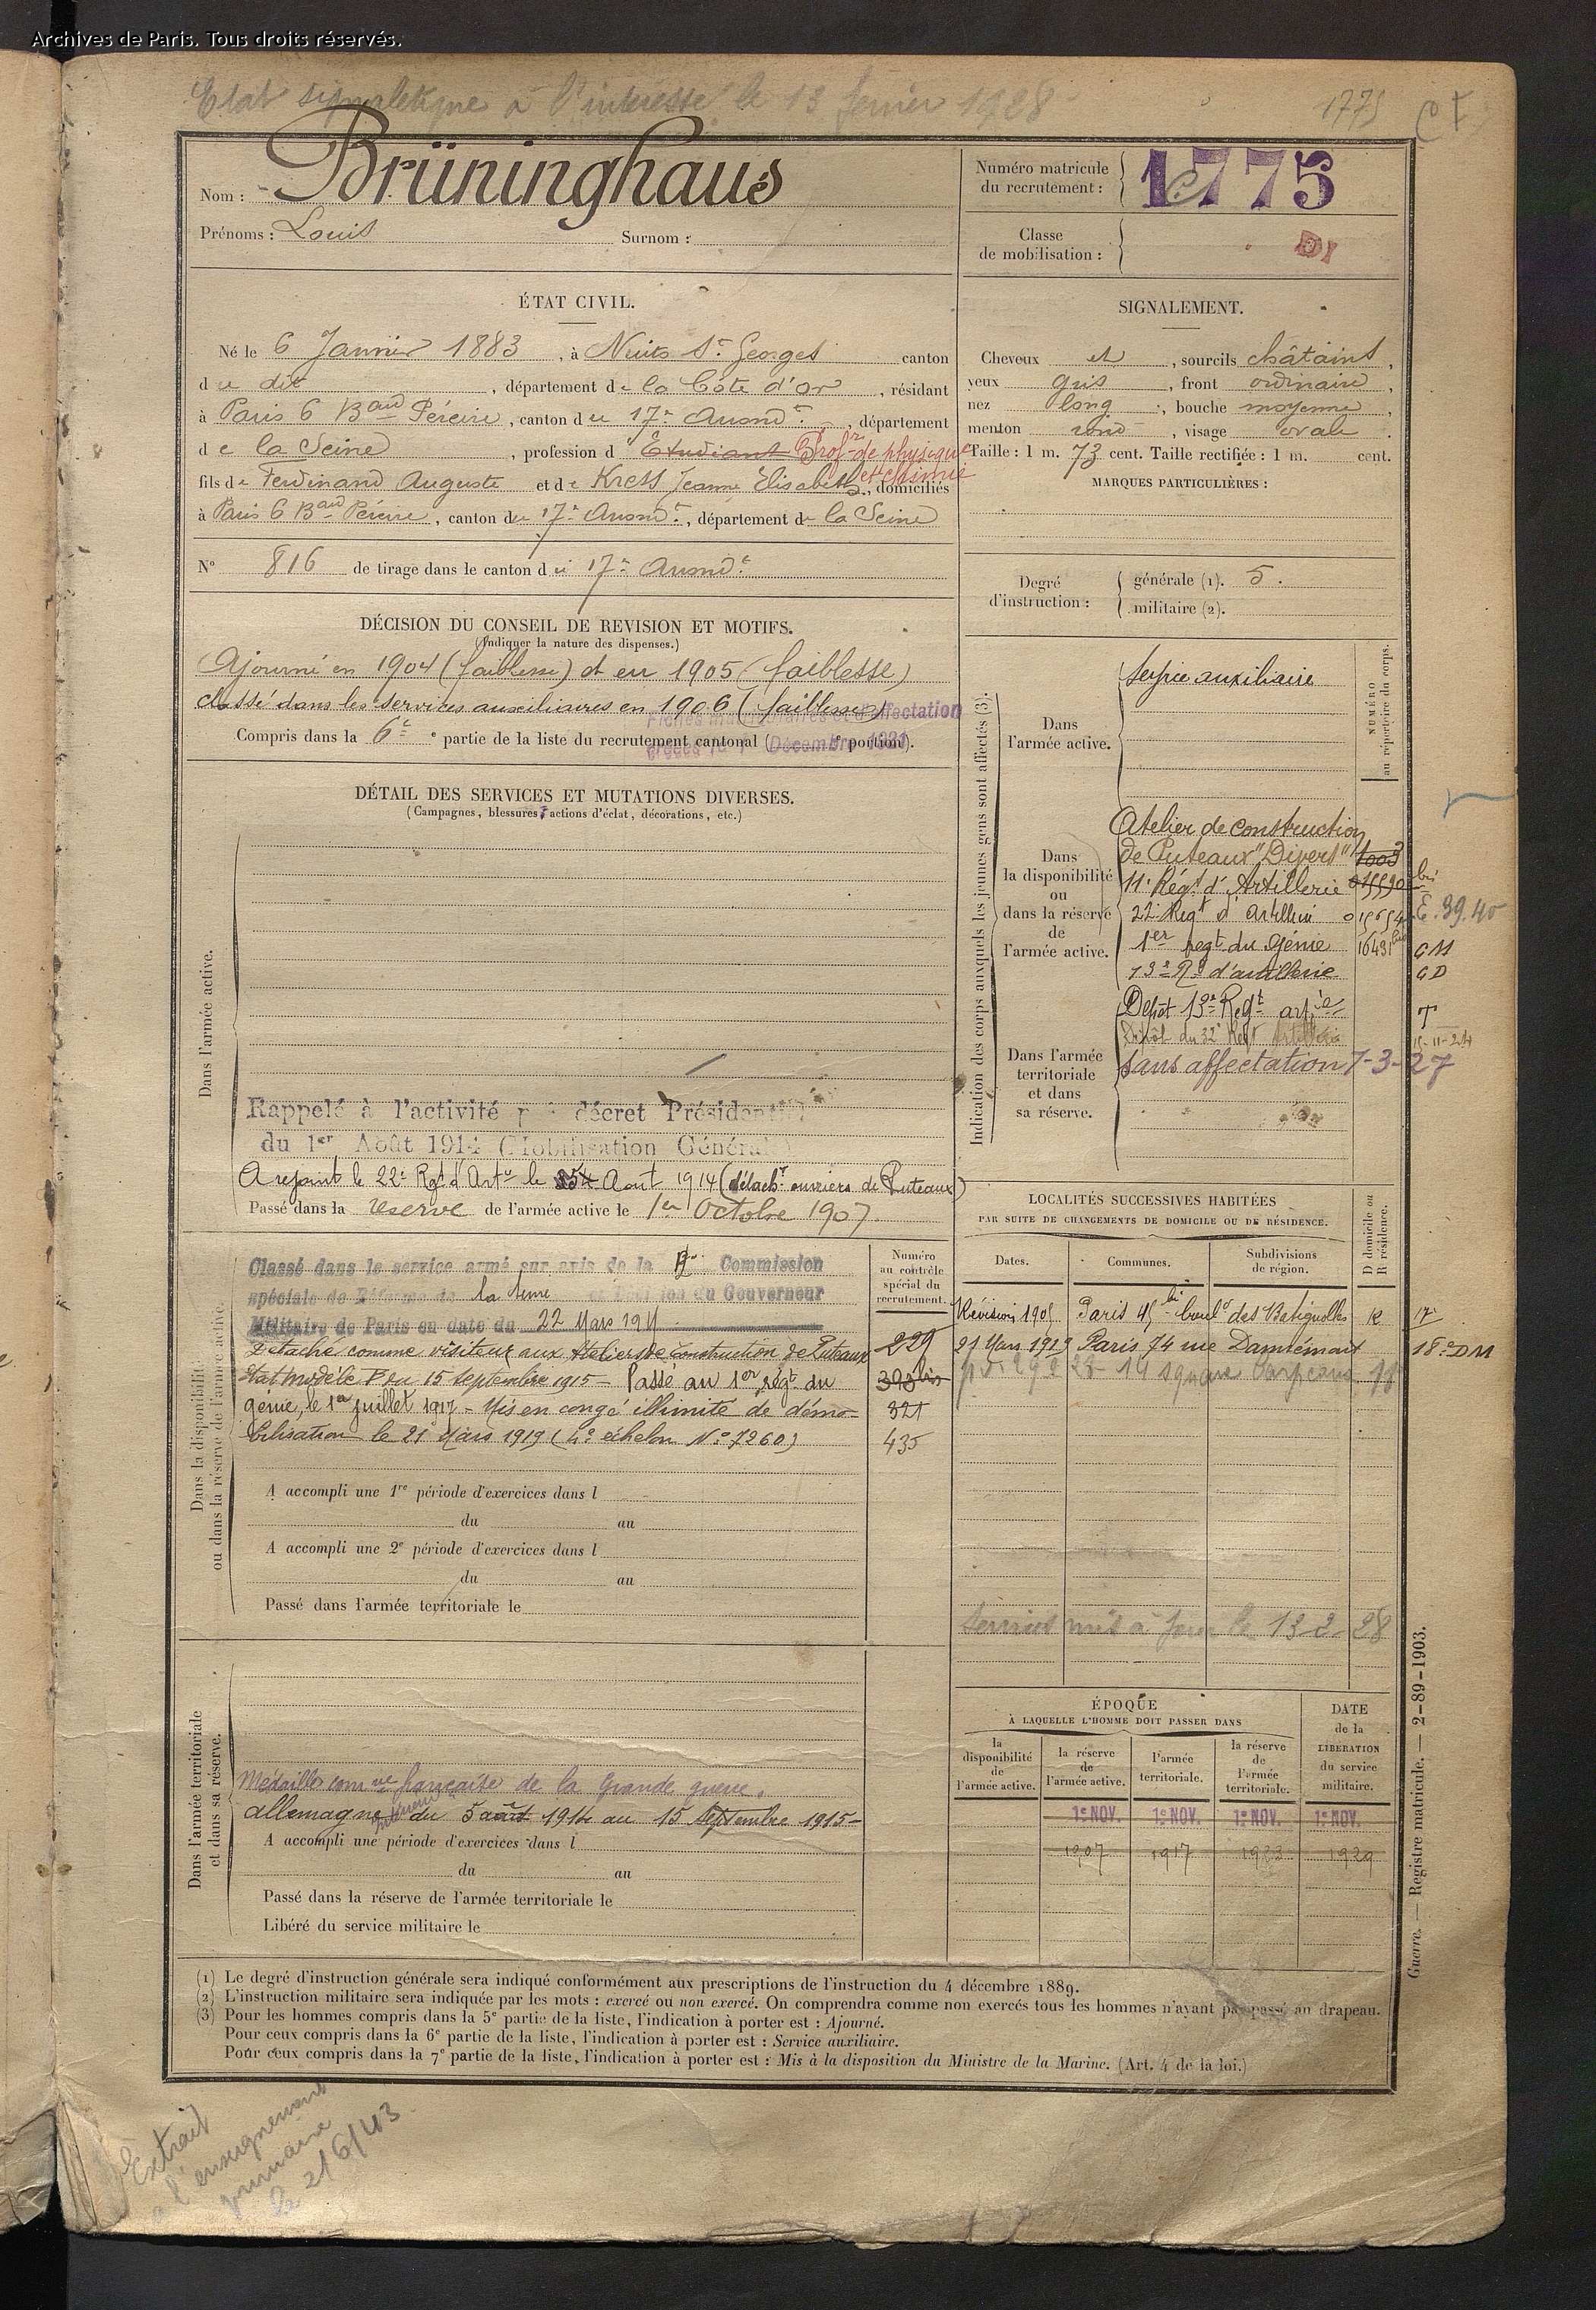 Archives de Paris. Tous droits réservés.
Etat signaletique à l'intéressé le 13 fevrier 1928
1775
Nom : Brüninghaus
Prénoms : Louis Surnom :
Numéro matricule du recrutement : 1775
Classe de mobilisation :
ÉTAT CIVIL.
Né le 6 Janvier 1883, à Nuits St Georges canton
du dit, département de la Côte d'or, résidant
à Paris 6 Bard Péreire, canton du 17e Arrondt., département
de la Seine, profession d'Etudiant Profr de physique et chimie
fils de Ferdinand Auguste et de Kress Jeanne Elisabeth, domiciliés
à Paris 6 Bard Péreire, canton du 17e Arrondt., département de la Seine
N° 816 de tirage dans le canton du 17e Arrondt.
SIGNALEMENT.
Cheveux et, sourcils châtains,
yeux gris, front ordinaire,
nez long, bouche moyenne,
menton rond, visage ovale.
Taille : 1 m. 73 cent. Taille rectifiée : 1 m. cent.
MARQUES PARTICULIÈRES :
Degré d'instruction : générale (1). 5.
militaire (2).
DÉCISION DU CONSEIL DE REVISION ET MOTIFS.
(Indiquer la nature des dispenses.)
Ajourné en 1904 (faiblesse) et en 1905 (faiblesse)
classé dans les services auxiliaires en 1906 (faiblesse)
Compris dans la 6e partie de la liste du recrutement cantonal ( e portion).
affectation
Décembre 1921
DÉTAIL DES SERVICES ET MUTATIONS DIVERSES.
(Campagnes, blessures, actions d'éclat, décorations, etc.)
Dans l'armée active.
Rappelé à l'activité par décret Présidentiel
du 1er Août 1914 (Mobilisation Générale)
A rejoint le 22e Rgt d'Artie le Aout 1914 (détacht ouvriers de Puteaux)
Passé dans la réserve de l'armée active le 1er Octobre 1907.
Indication des corps auxquels les jeunes gens sont affectés (3).
NUMÉRO au répertoire du corps.
Dans l'armée active.
Service auxiliaire
Dans la disponibilité ou dans la réserve de l'armée active.
Atelier de construction
de Puteaux "Divers" 1003
11e Régt d'Artillerie
22e Regt d'artillerie
1er regt du Génie
13e Rt d'artillerie
Dans l'armée territoriale et dans sa réserve.
Dépôt 13e Regt artie
Dépôt du 32e Regt Artillerie
Sans affectation 7-3-27
Dans la disponibilité ou dans la réserve de l'armée active.
Numéro au contrôle spécial du recrutement.
Classé dans le service armé sur avis de la Commission
spéciale de Réforme de la Seine du Gouverneur
Militaire de Paris en date du 22 Mars 19
Détaché comme visiteur aux Ateliers de Construction de Puteaux
Etat modèle F du 15 Septembre 1915 - Passé au 1er régt du
génie, le 1er juillet 1917 - Mis en congé illimité de démo-
bilisation le 21 Mars 1919 (4e échelon N° 7260)
229
393 bis
321
435
A accompli une 1re période d'exercices dans l
du au
A accompli une 2e période d'exercices dans l
du au
Passé dans l'armée territoriale le
LOCALITÉS SUCCESSIVES HABITÉES
PAR SUITE DE CHANGEMENTS DE DOMICILE OU DE RÉSIDENCE.
Dates.
Communes.
Subdivisions de région.
D domicile ou R résidence.
Révision 1905 Paris 45 bis boul d des Batignolles R 17e
21 Mars 1919 Paris 74 rue Damrémont 18e DM
14 square Carpeaux 18
Services mis à jour le 13-2-28
Dans l'armée territoriale et dans sa réserve.
Médaille comve française de la Grande guerre.
Allemagne intérieur du 5 août 1914 au 15 Septembre 1915 -
A accompli une période d'exercices dans l
du au
Passé dans la réserve de l'armée territoriale le
Libéré du service militaire le
ÉPOQUE
À LAQUELLE L'HOMME DOIT PASSER DANS
la disponibilité de l'armée active.
la réserve de l'armée active.
l'armée territoriale.
la réserve de l'armée territoriale.
DATE de la LIBÉRATION du service militaire.
1er NOV. 1er NOV. 1er NOV. 1er NOV.
1907 1917 1923 1929
Guerre. — Registre matricule. — 2-89-1903.
(1) Le degré d'instruction générale sera indiqué conformément aux prescriptions de l'instruction du 4 décembre 1889.
(2) L'instruction militaire sera indiquée par les mots : exercé ou non exercé. On comprendra comme non exercés tous les hommes n'ayant pas passé au drapeau.
(3) Pour les hommes compris dans la 5e partie de la liste, l'indication à porter est : Ajourné.
Pour ceux compris dans la 6e partie de la liste, l'indication à porter est : Service auxiliaire.
Pour ceux compris dans la 7e partie de la liste, l'indication à porter est : Mis à la disposition du Ministre de la Marine. (Art. 4 de la loi.)
Extrait
à l'enseignement
primaire
le 21/6/43